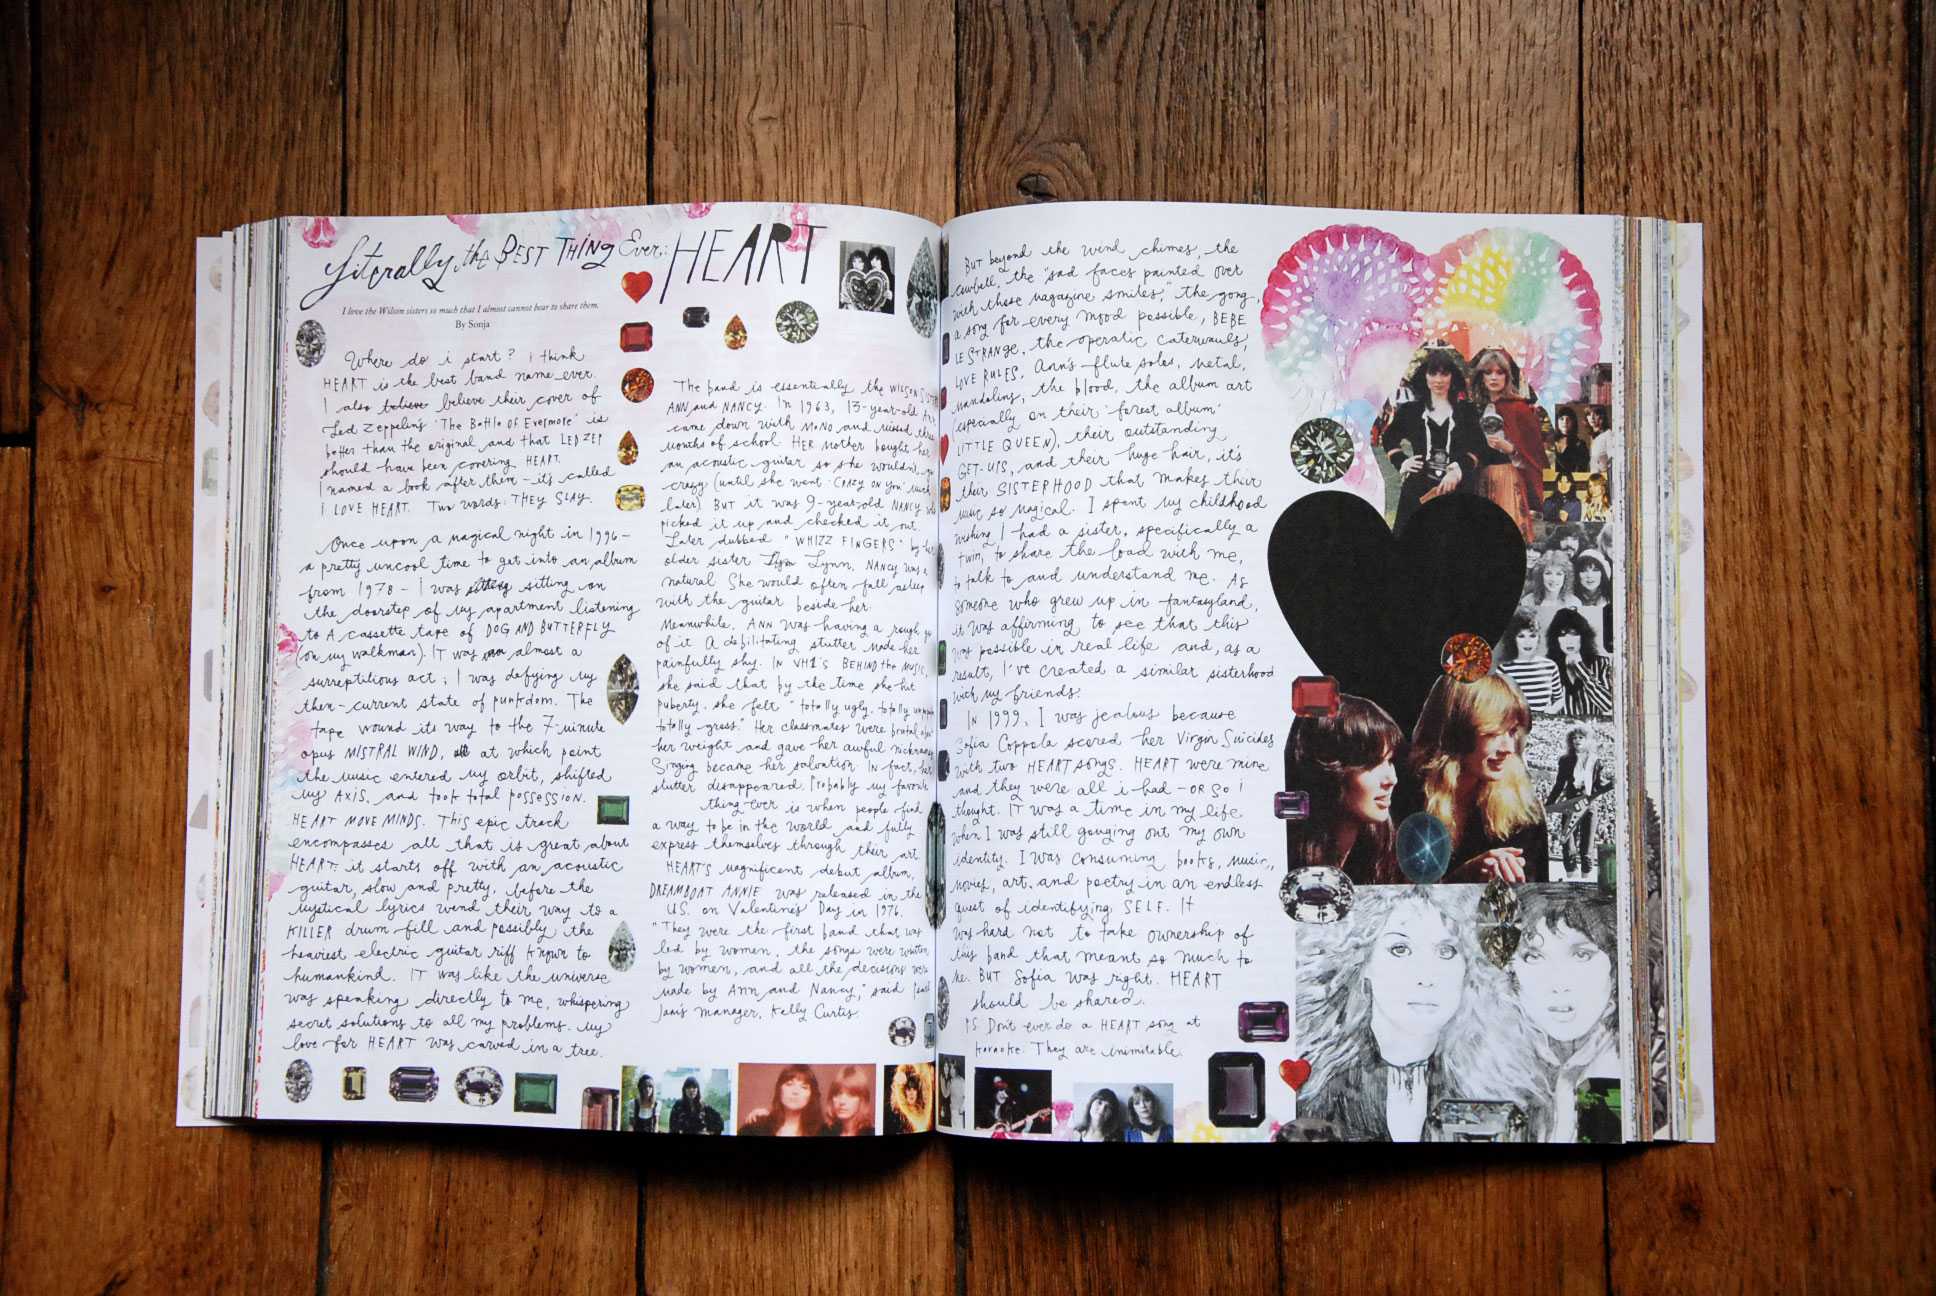 Literally the BEST THING Ever: HEART
I love the Wilson sisters so much that I almost cannot bear to share them.
By Sonja
Where do i start? I think
HEART is the best band name ever.
I also believe believe their cover of
Led Zeppelin's 'The Battle of Evermore' is
better than the original and that LED ZEP
should have been covering HEART.
I named a book after them – it's called
I LOVE HEART. Two words: THEY SLAY.
Once upon a magical night in 1996 –
a pretty uncool time to get into an album
from 1978 – I was sitting on
the doorstep of my apartment listening
to A cassette tape of DOG AND BUTTERFLY
(on my walkman). IT was almost a
surreptitious act; I was defying my
then-current state of punkdom. The
tape wound its way to the 7-minute
opus MISTRAL WIND, at which point
the music entered my orbit, shifted
my AXIS, and took total possession.
HEART MOVE MINDS. THIS epic track
encompasses all that is great about
HEART: it starts off with an acoustic
guitar, slow and pretty, before the
mystical lyrics wend their way to a
KILLER drum fill and possibly the
heaviest electric guitar riff known to
humankind. IT was like the universe
was speaking directly to me, whispering
secret solutions to all my problems. My
love for HEART was carved in a tree.
The band is essentially the WILSON
ANN and NANCY. In 1963, 13-year-old Ann
came down with MONO and missed three
months of school. HER mother bought her
an acoustic guitar so she wouldn't go
crazy (until she went 'CRAZY ON YOU' much
later). BUT it was 9-year-old NANCY who
picked it up and checked it out.
Later dubbed "WHIZZ FINGERS" by her
older sister Lynn, NANCY was a
natural. She would often fall asleep
with the guitar beside her.
Meanwhile, ANN was having a rough go
of it. A debilitating stutter made her
painfully shy. IN VH1's BEHIND the MUSIC,
she said that by the time she hit
puberty, she felt "totally ugly, totally
totally gross." Her classmates were brutal about
her weight and gave her awful nicknames.
Singing became her salvation. IN fact, her
stutter disappeared. Probably my favorite
thing ever is when people find
a way to be in the world and fully
express themselves through their art.
HEART'S magnificent debut album,
DREAMBOAT ANNIE was released in the
U.S. on Valentine's Day in 1976.
"They were the first band that was
led by women, the songs were written
by women, and all the decisions were
made by Ann and Nancy," said
manager, Kelly Curtis.
BUT beyond the wind chimes, the
cowbell, the "sad faces painted over
with those magazine smiles," the gong,
a song for every mood possible, BEBE
LE STRANGE, the operatic caterwauls,
LOVE RULES, Ann's flute solos, metal,
mandolins, the blood, the album art
(especially on their 'forest album'
LITTLE QUEEN), their outstanding
GET-UPS, and their huge hair, it's
their SISTERHOOD that makes their
music so magical. I spent my childhood
wishing I had a sister, specifically a
twin, to share the load with me,
to talk to and understand me. As
someone who grew up in fantasyland,
it was affirming to see that this
was possible in real life and, as a
result, I've created a similar sisterhood
with my friends.
IN 1999, I was jealous because
Sofia Coppola scored her Virgin Suicides
with two HEART songs. HEART were mine
and they were all i had – OR SO I
thought. IT was a time in my life
when I was still gouging out my own
identity. I was consuming books, music,
movies, art, and poetry in an endless
quest of identifying SELF. It
was hard not to take ownership of
this band that meant so much to
me. BUT Sofia was right. HEART
should be shared.
PS Don't ever do a HEART song at
karaoke. They are inimitable.